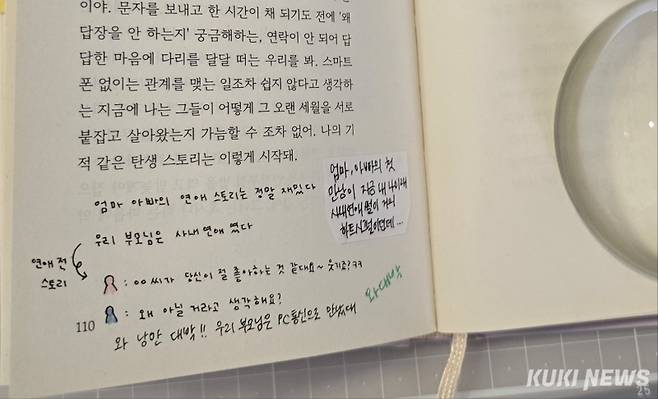 이야. 문자를 보내고 한 시간이 채 되기도 전에 '왜
답장을 안 하는지' 궁금해하는, 연락이 안 되어 답
답한 마음에 다리를 달달 떠는 우리를 봐. 스마트
폰 없이는 관계를 맺는 일조차 쉽지 않다고 생각하
는 지금에 나는 그들이 어떻게 그 오랜 세월을 서로
붙잡고 살아왔는지 가늠할 수 조차 없어. 나의 기
적 같은 탄생 스토리는 이렇게 시작돼.
엄마 아빠의 연애 스토리는 정말 재밌다
우리 부모님은 사내 연애 였다
연애 전
스토리
: 00 씨가 당신이 절 좋아하는 것 같대요~ 웃기죠?ㅋㅋ
: 왜 아닐 거라고 생각해요?
110
와 낭만 대박!! 우리 부모님은 PC통신으로 만났대
와 대박
엄마, 아빠의 첫
만남이 지금 내 나이래
사내연애 썰이 거의
하트시그널이던데...
KUKI NEWS
25